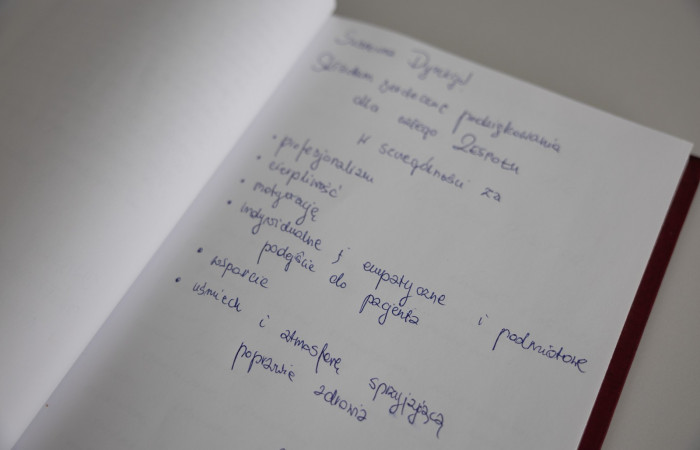 Szanowna Dyrekcjo!
Składam serdeczne podziękowania
dla całego Zespołu
w szczególności za
• profesjonalizm
• cierpliwość
• motywację
• indywidualne i empatyczne i podmiotowe
podejście do pacjenta
• wsparcie
• uśmiech i atmosferę sprzyjającą
poprawie zdrowia